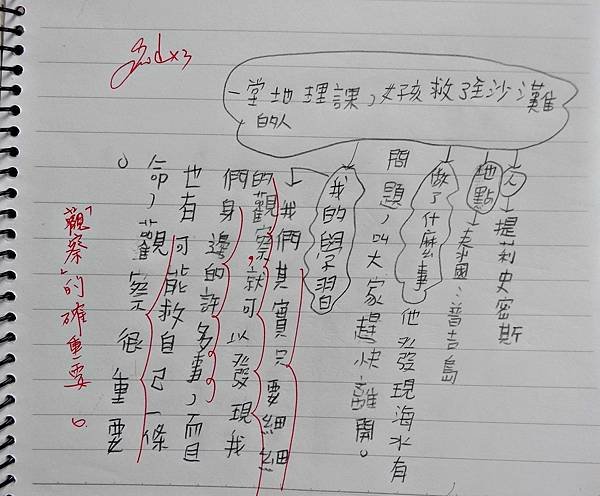 Good x3
一堂地理課，女孩救沙灘
的人
人→提莉史密斯
地點→泰國：普吉島
做了什麼事→他發現海水有
問題，叫大家趕快離開。
我的學習
我們其實只要細細
的觀察，就可以發現我
們身邊的許多事，而且
也有可能救自己一條
命，觀察很重要
。
「觀察」的確重要。